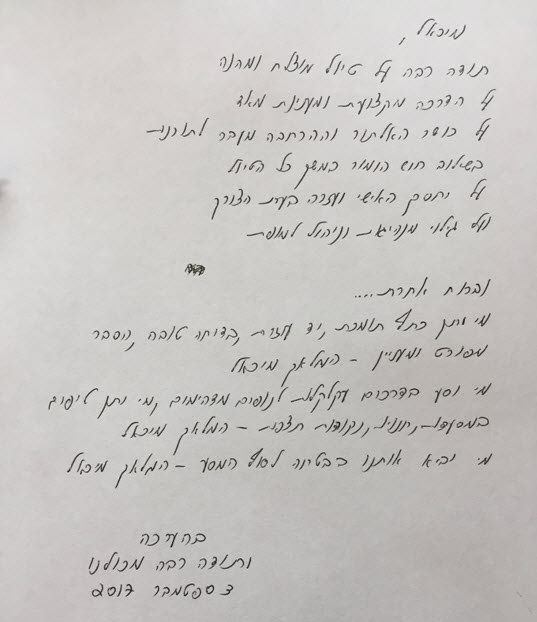 מיכאל,
תודה רבה על טיול מוצלח ומהנה
על הדרכה מקצועית ומעניינת מאד
על כושר האלתור וההרחבה מעבר לתורנית
בשילוב חוש הומור במשך כל הטיול
על יחסך האישי ועזרה בעת הצורך
ועל גילוי מנהיגות וניהול למופת
וברוח אחרת....
מי נותן כתף תומכת, יד עוזרת, בדיקה טובה, הסבר
מפורט ומעניין - המלאך מיכאל
מי נוסע בדרכים עקלקלות לנופים מדהימים, מי נותן טיפים
במסעדות, חנויות, נקודות תצפית - המלאך מיכאל
מי יביא אותנו בבטחה לסוף המסע - המלאך מיכאל
בהערכה
ותודה רבה מכולנו
3 ספטמבר 2017